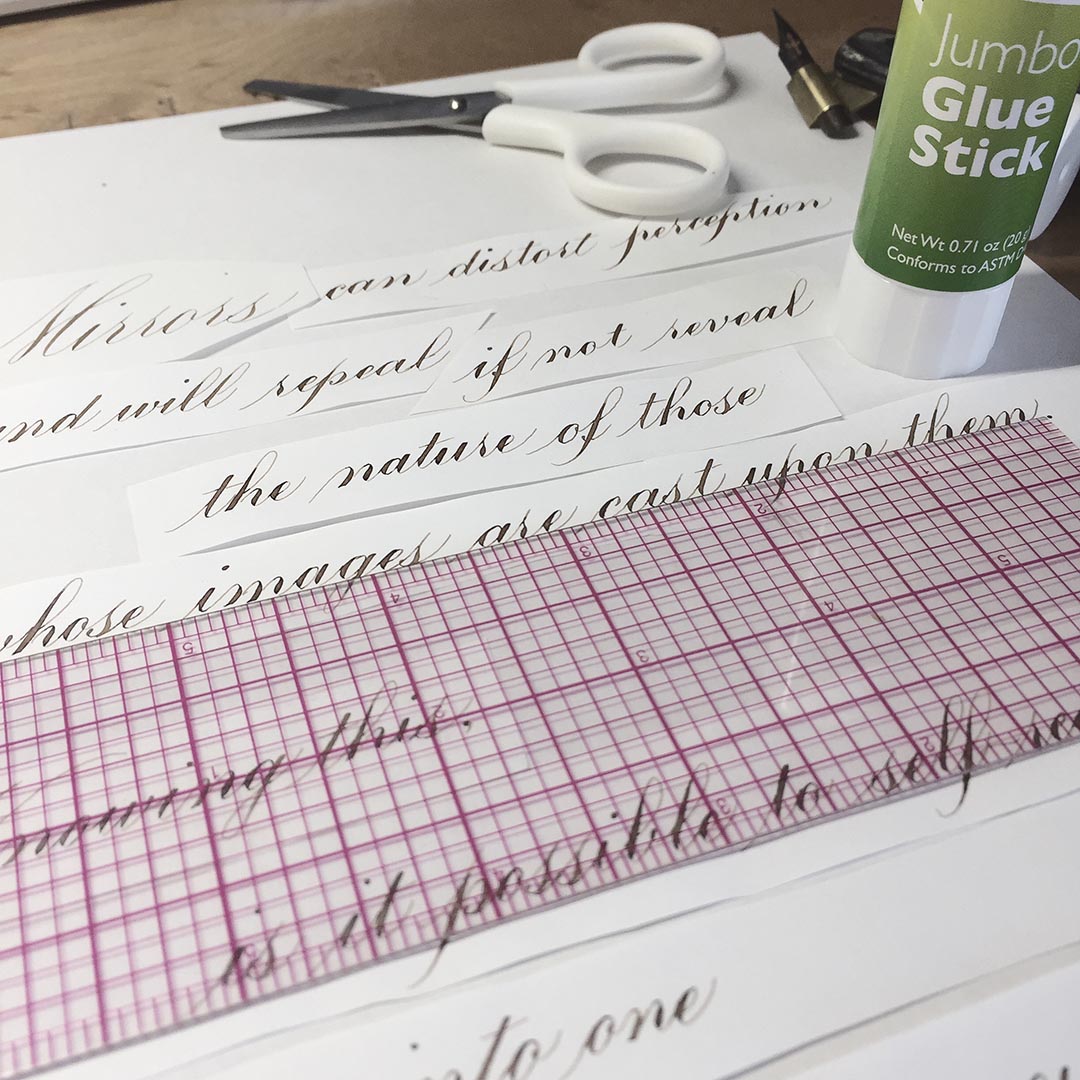 Jumbo
Glue
Stick
Net Wt 0.71 oz (20 g)
Conforms to ASTM
Mirrors can distort perception
and will repeal if not reveal
the nature of those
whose images are cast upon them.
knowing this.
is it possible to self
into one
1
2
3
4
5
5
4
3
2
3